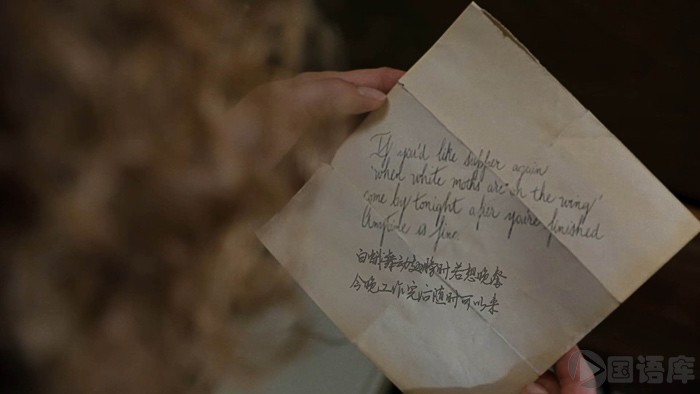 If you'd like supper again
"when white moths are on the wing"
come by tonight after you're finished
Anytime is fine.
白蛾舞动翅膀时若想晚餐
今晚工作完后随时可以来
国语库